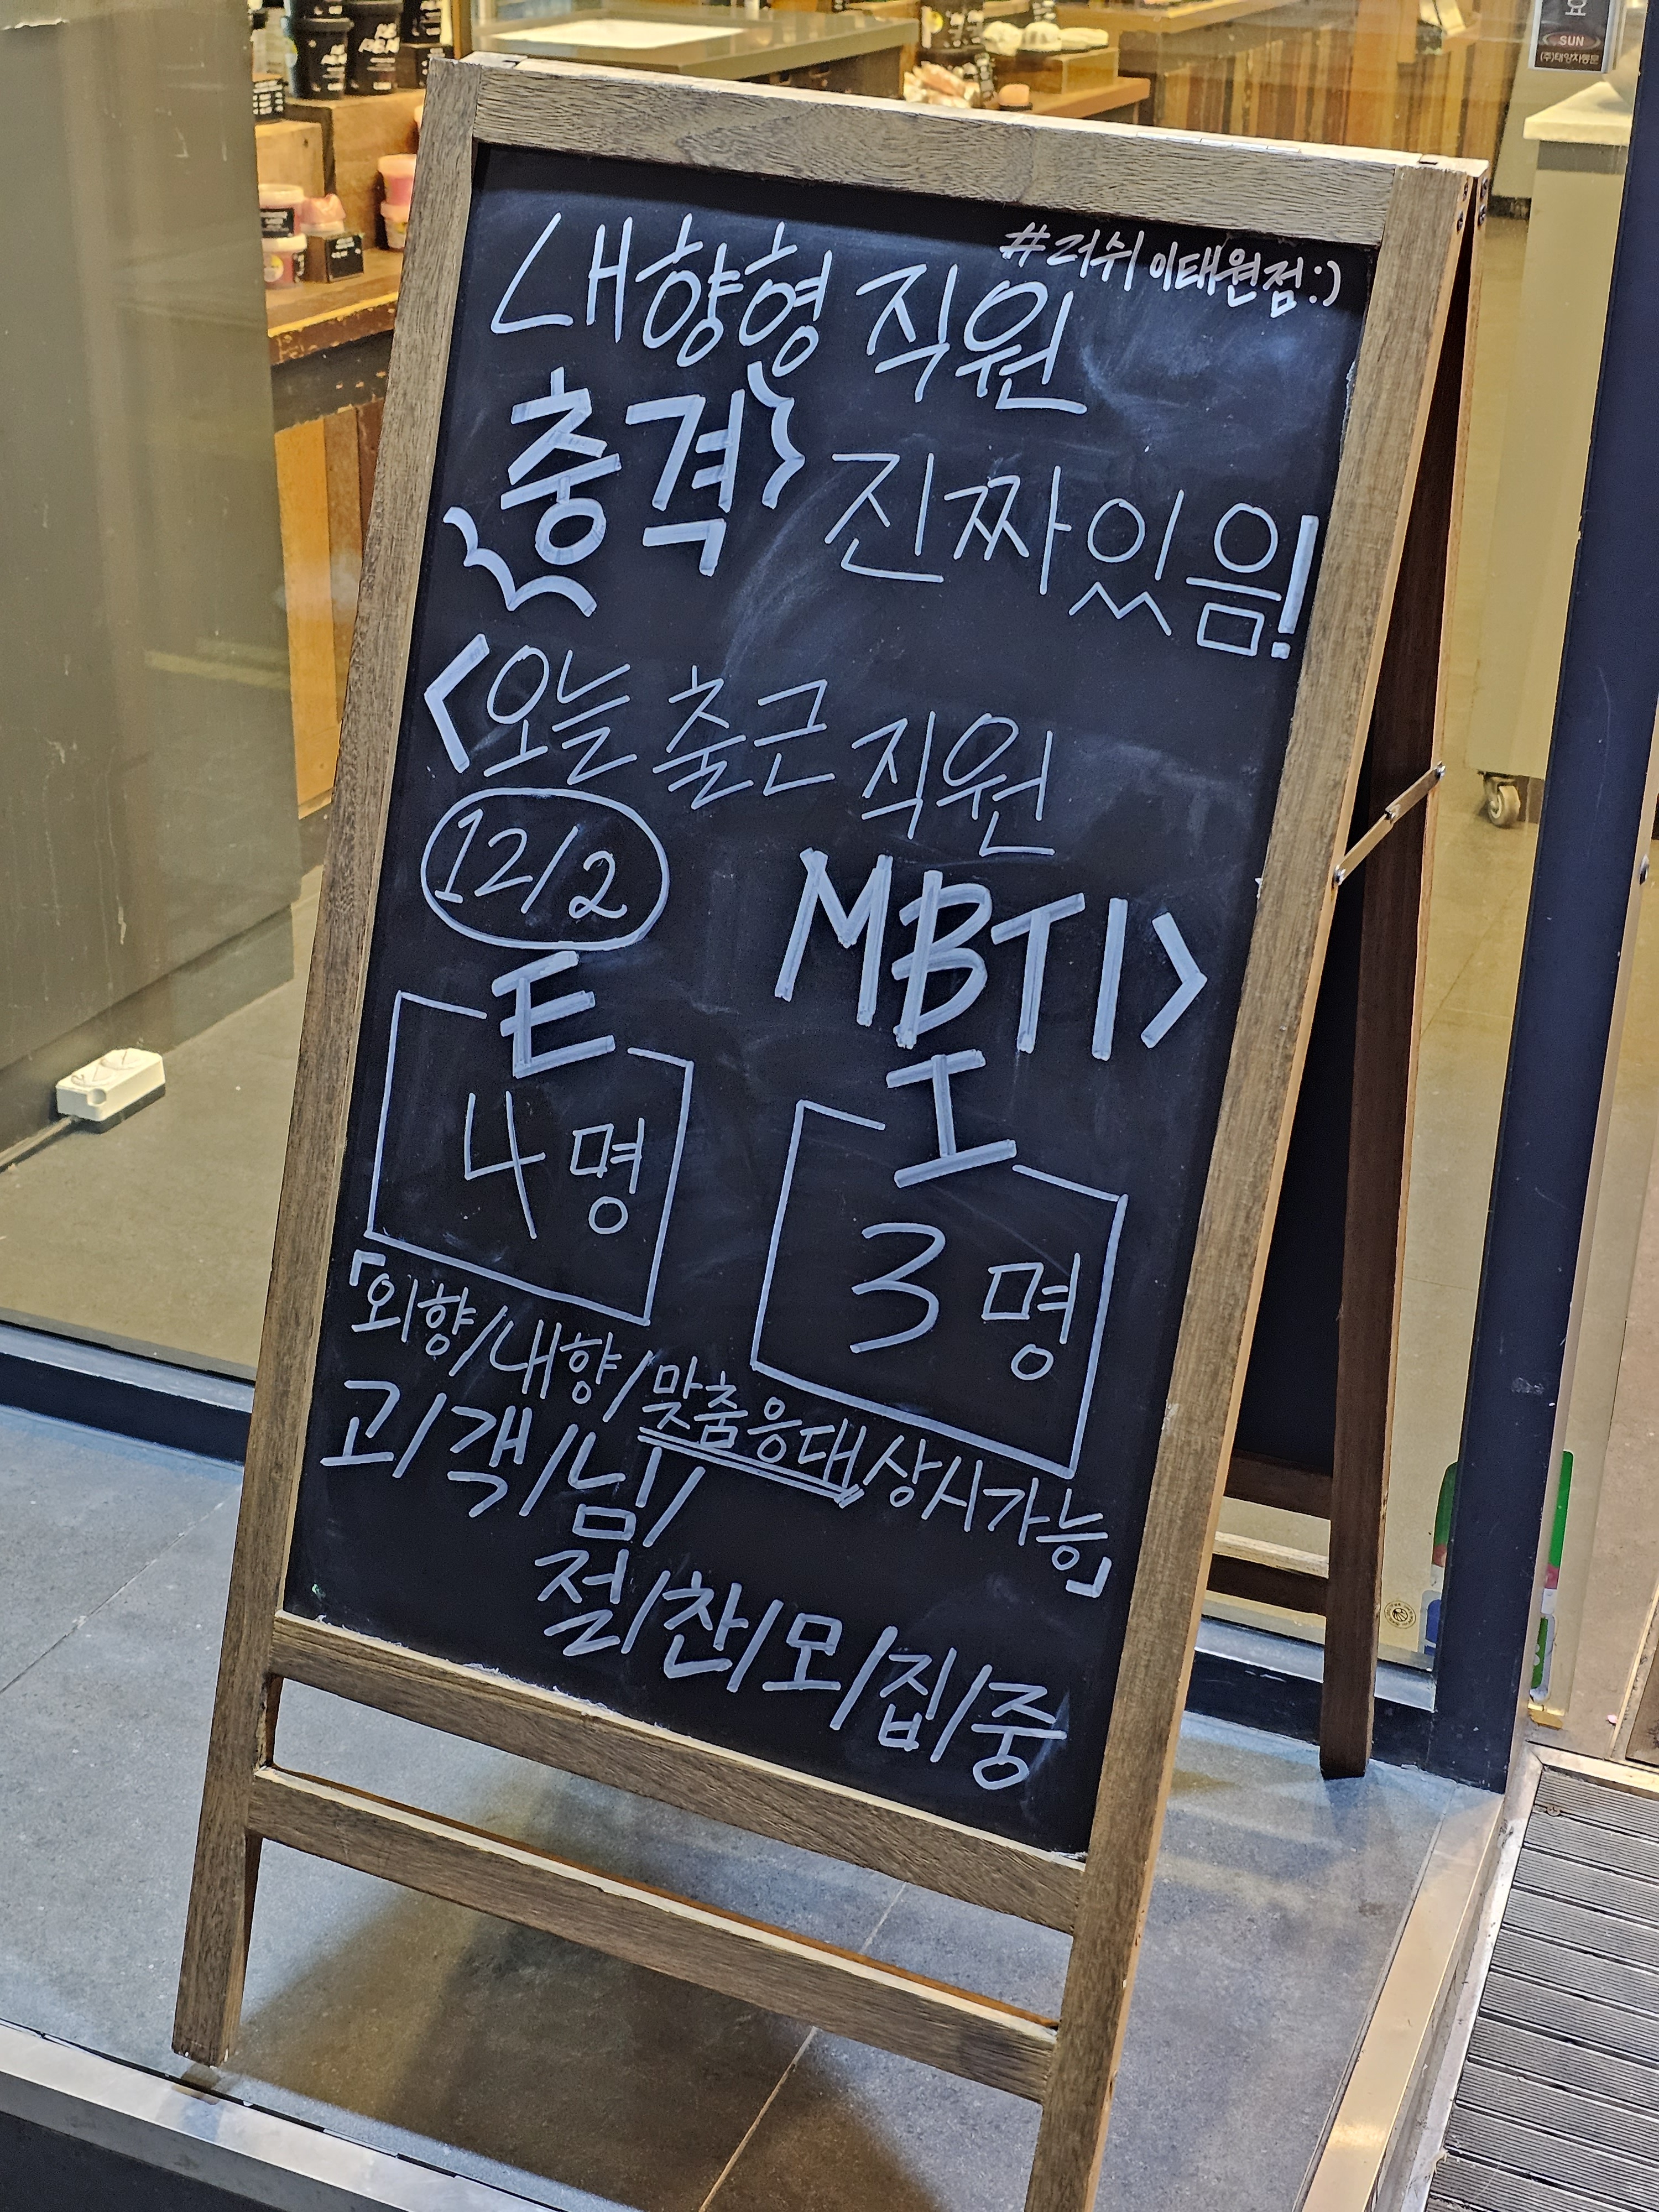 #러쉬 이태원점:)
내향형 직원
충격 진짜 있음!
<오늘 출근 직원
12/2
MBTI>
E
4명
I
3명
「외향/내향/맞춤응대/상시가능」
고/객/님/
절/찬/모/집/중
요
SUN
(주)태양자동문